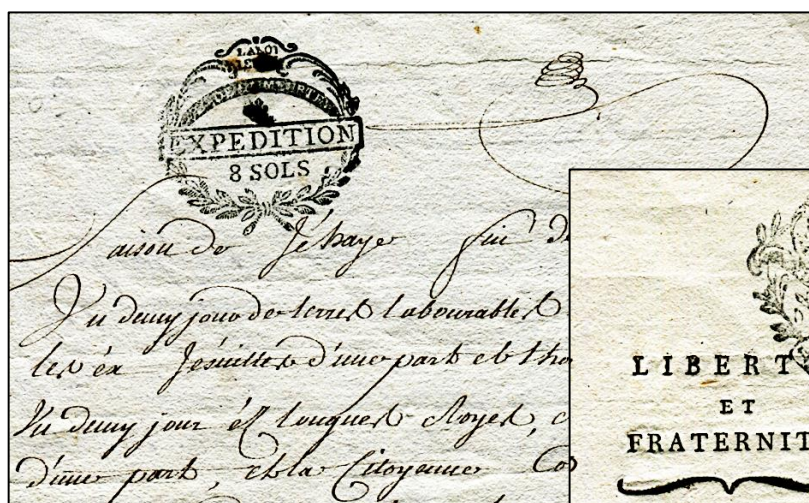 LA LOI
EXPEDITION
8 SOLS
aison de Jéhaye fin de
Un demy jour de terres labourables
les éx Jésuittes d'une part et tho
Un demy jour és longues Royes, c
d'une part, et la Citoyenne Co
LIBERT
ET
FRATERNIT